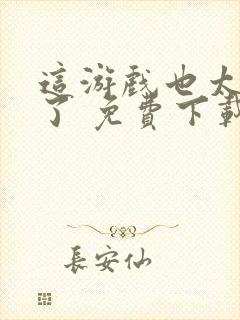 這游戲也太
了 免費下載
長安仙